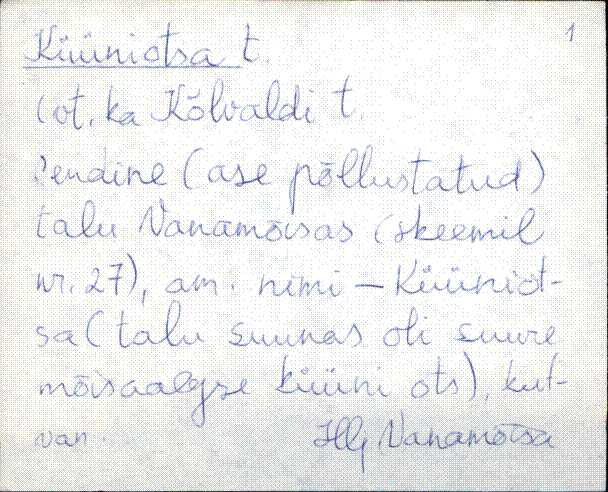 1
Küüniotsa t.
(vt. ka Kõlvaldi t.
Pendine (ase põllustatud)
talu Vanamõisas (skeemil
nr. 27), am. nimi – Küüniot-
sa (talu suunas oli suure
mõisaaegse küüni ots), kut-
van Hlj Vanamõisa